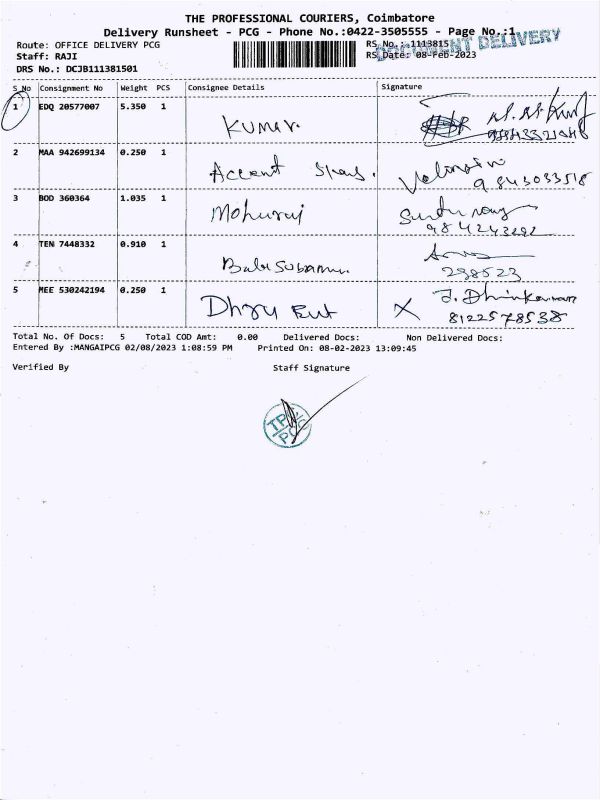 THE PROFESSIONAL COURIERS, Coimbatore
Delivery Runsheet - PCG - Phone No.:0422-3505555 - Page No.:1
Route: OFFICE DELIVERY PCG
RS No.: 1113815
DOCUMENT DELIVERY
Staff: RAJI
RS Date: 08-Feb-2023
DRS No.: DCJB111381501
S No Consignment No Weight PCS Consignee Details Signature
1 EDQ 20577007 5.350 1 Kumar
2 MAA 942699134 0.250 1 Accent
9843033518
3 BOD 360364 1.035 1
4 TEN 7448332 0.910 1
298523
5 MEE 530242194 0.250 1
8122578538
Total No. Of Docs: 5 Total COD Amt: 0.00 Delivered Docs: Non Delivered Docs:
Entered By :MANGAIPCG 02/08/2023 1:08:59 PM Printed On: 08-02-2023 13:09:45
Verified By Staff Signature